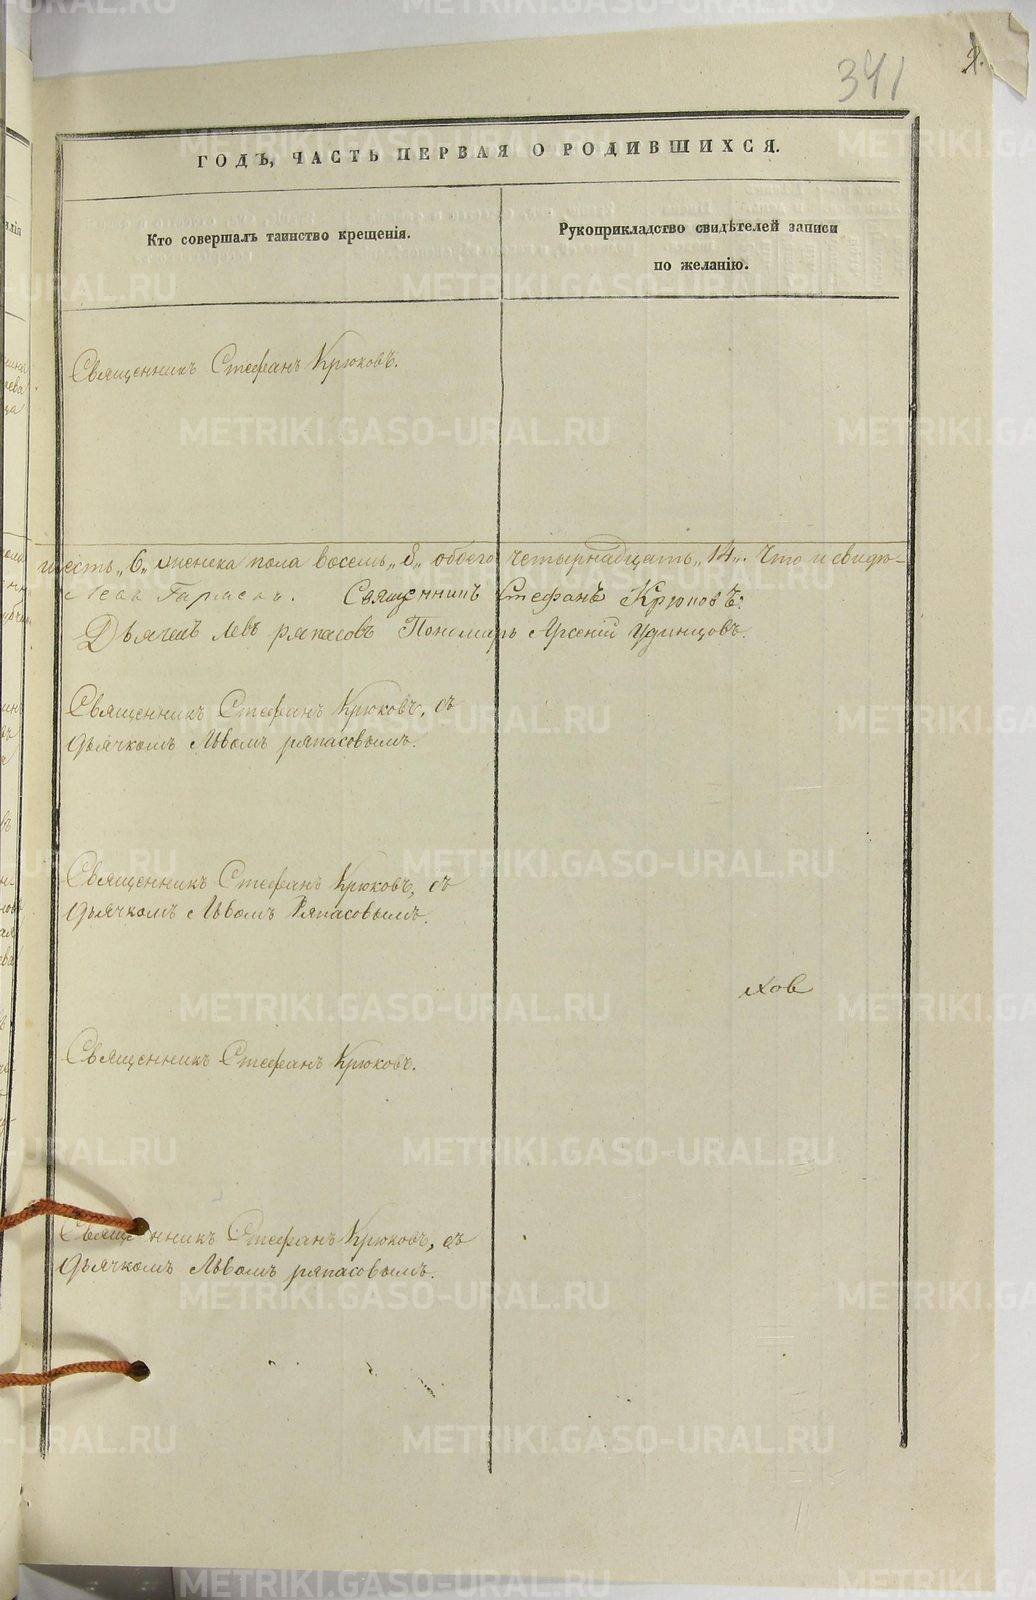 341
ГОДЪ, ЧАСТЬ ПЕРВАЯ О РОДИВШИХСЯ.
Кто совершалъ таинство крещенія.
Рукоприкладство свидѣтелей записи
по желанію.
Священникъ Стефанъ Крюковъ.
шесть „6„ женска пола восемь „8„ обоего четырнадцать „14„. Что и свидѣ-
Священникъ Стефанъ Крюковъ.
Дьячекъ Левъ ряпасовъ Пономарь Арсеній Удинцовъ.
Священникъ Стефанъ Крюковъ, съ
дьячкомъ Львомъ ряпасовымъ.
Священникъ Стефанъ Крюковъ, съ
дьячкомъ Львомъ Ряпасовымъ.
хов
Священникъ Стефанъ Крюковъ.
Священникъ Стефанъ Крюковъ, съ
дьячкомъ Львомъ ряпасовымъ.
METRIKI.GASO-URAL.RU